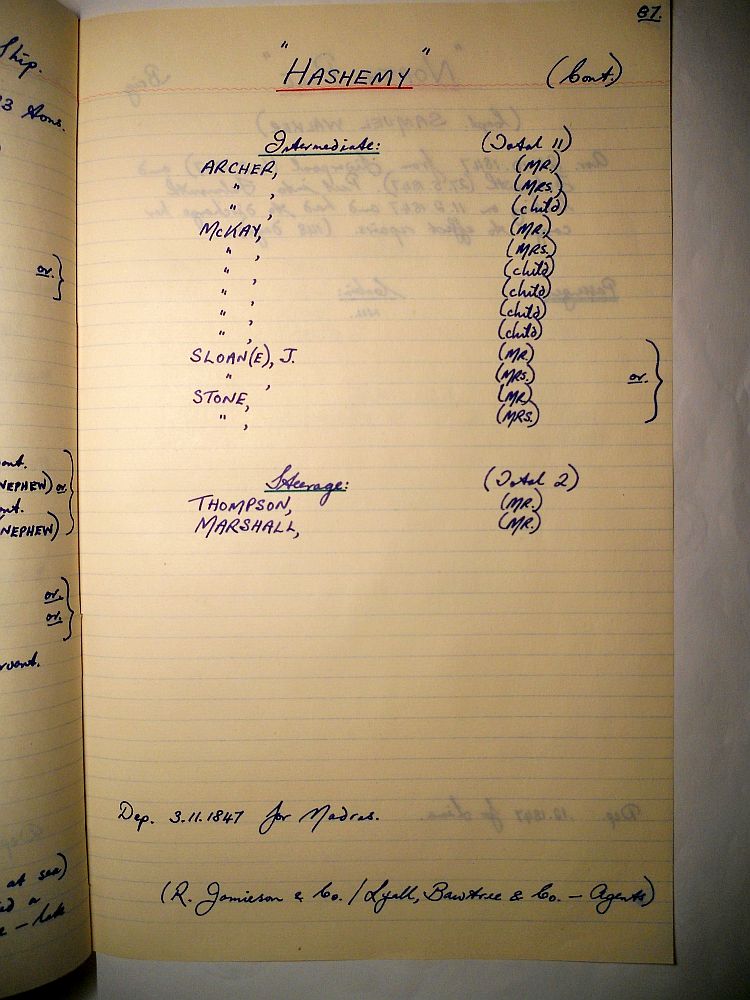 Ship.
3 tons.
or.
NEPHEW) or.
NEPHEW)
or.
or.
at sea)
87.
"HASHEMY" (Cont.)
Intermediate: (Total 11)
ARCHER, (MR.)
" , (MRS.)
" , (child)
McKAY, (MR.)
" , (MRS.)
" , (child)
" , (child)
" , (child)
" , (child)
SLOAN(E), J. (MR.)
" , (MRS.) or.
STONE, (MR.)
" , (MRS.)
Steerage: (Total 2)
THOMPSON, (MR.)
MARSHALL, (MR.)
Dep. 3.11.1847 for Madras.
(R. Jamieson & Co. / Lyall, Bawtree & Co. – Agents)